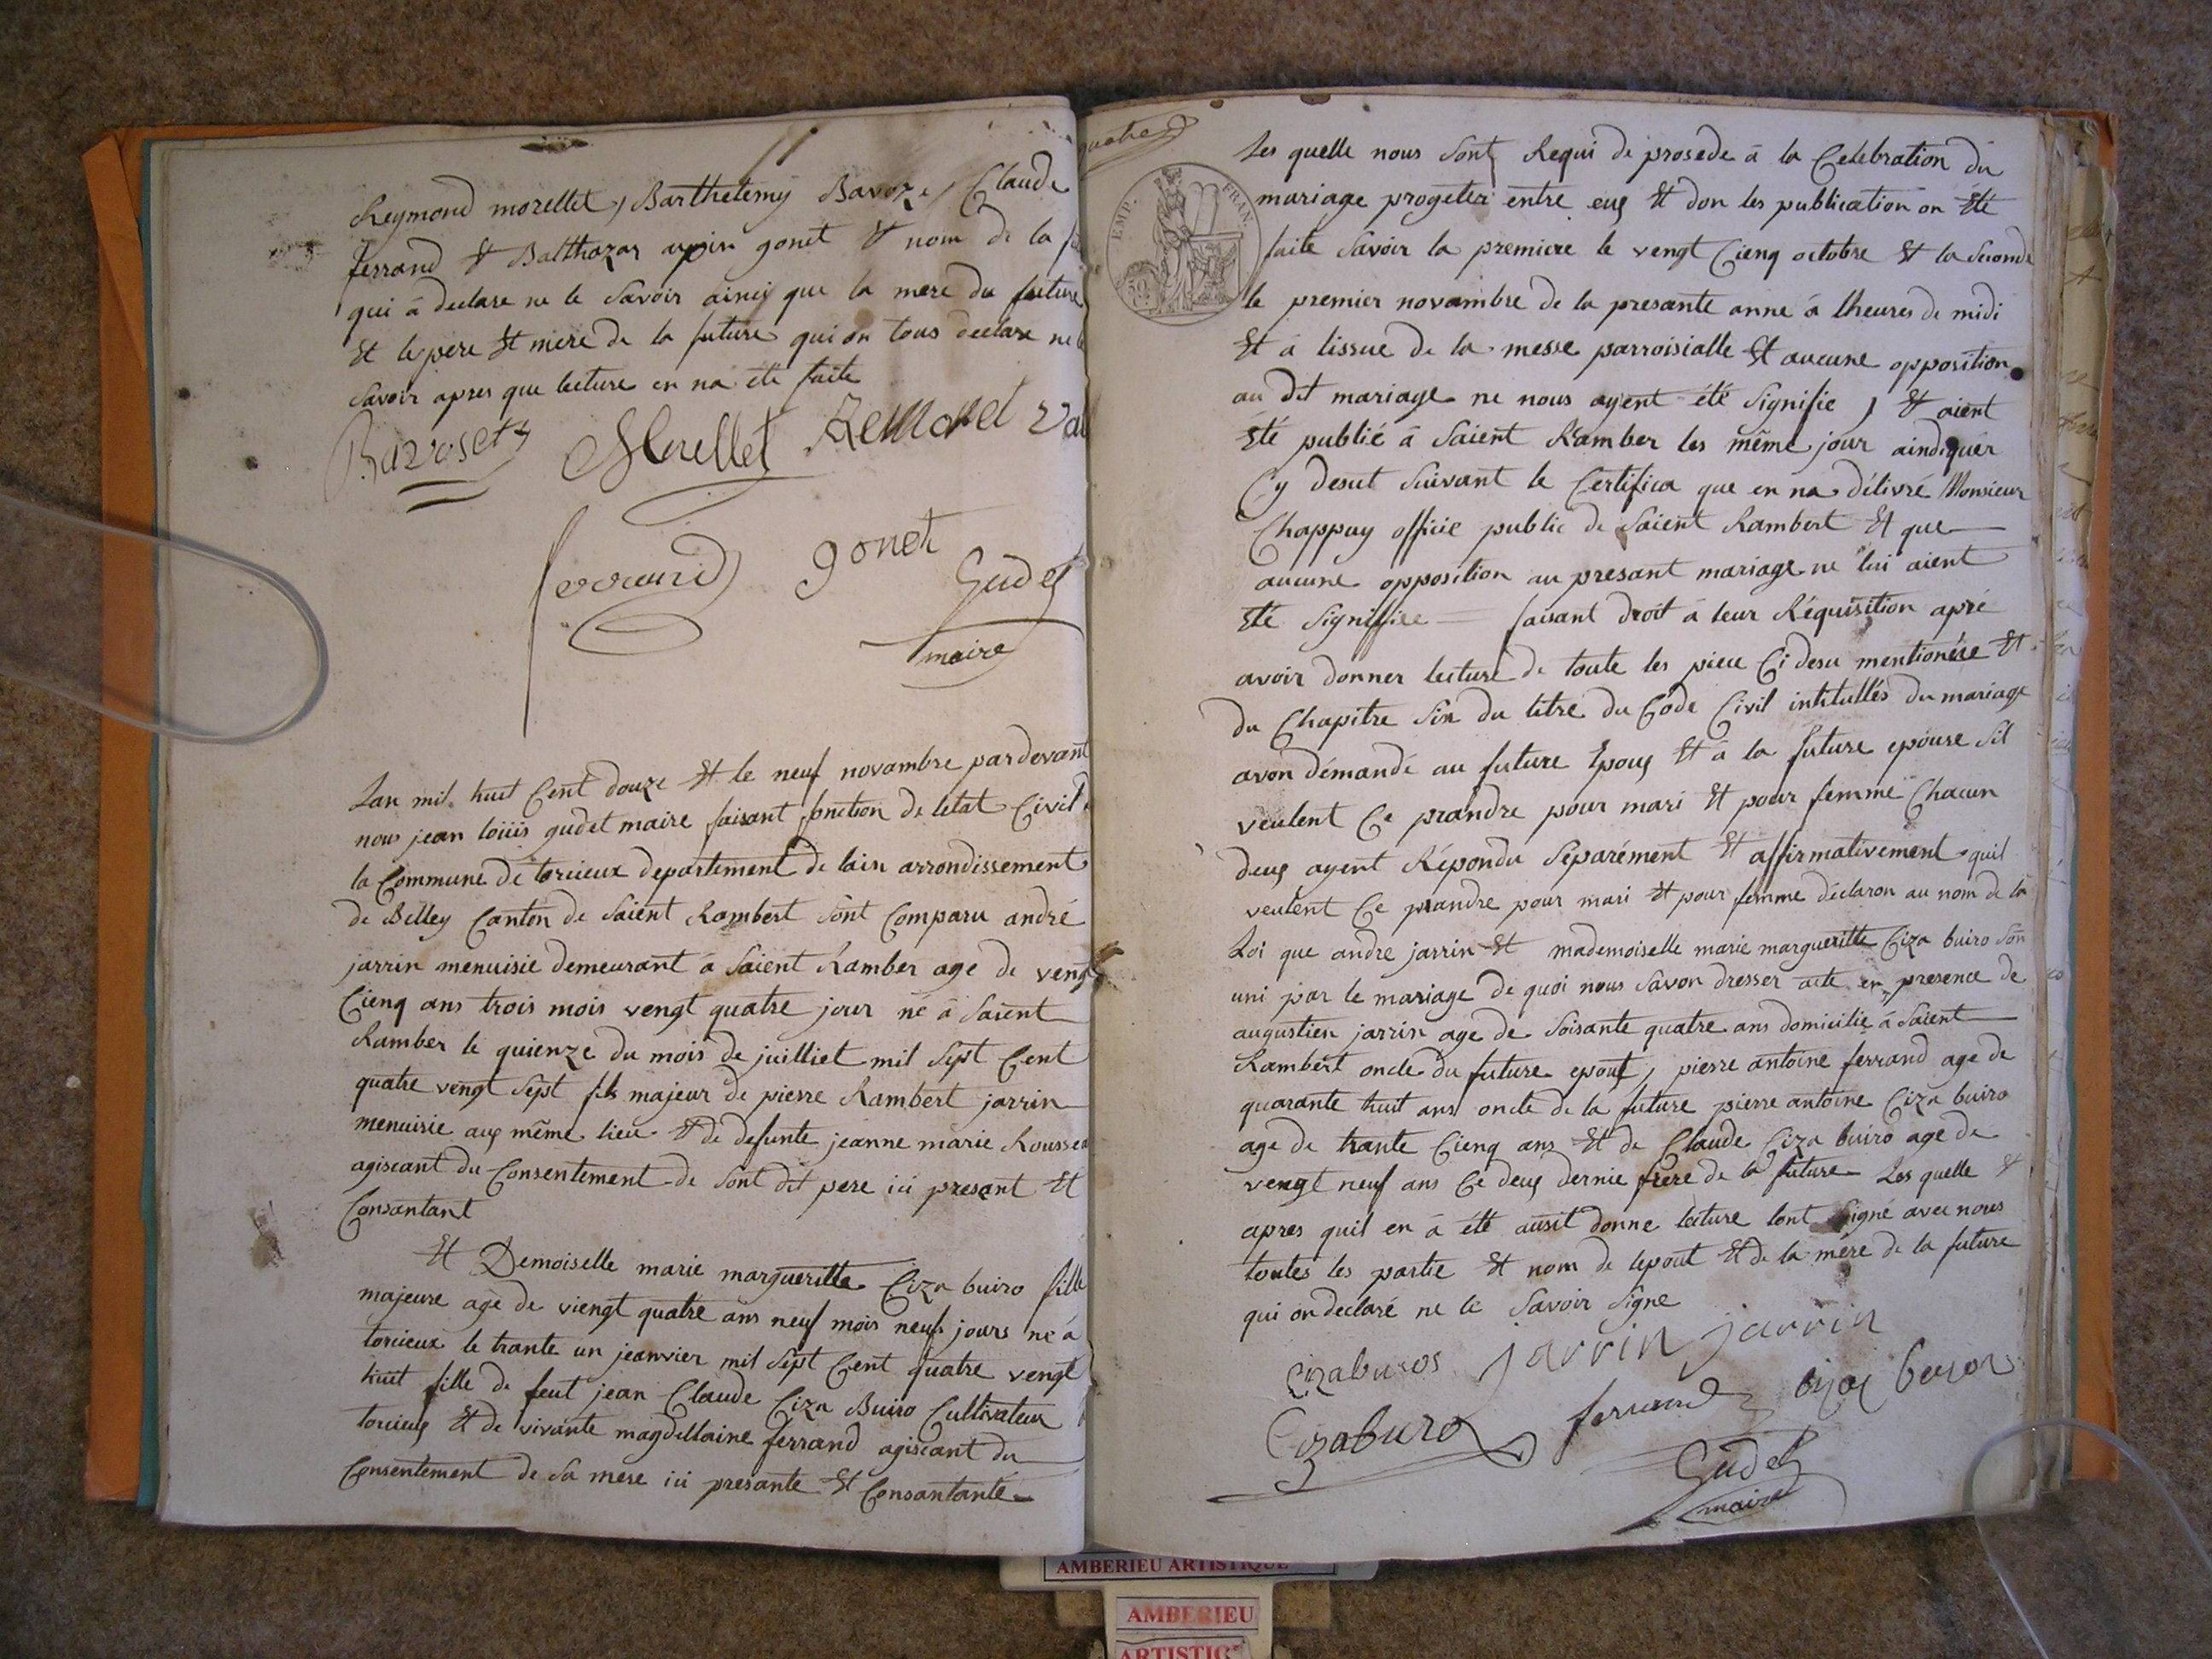 Reymond morellet, Barthelemy Bavoze, Claude
ferrand Et Balthazar gonet Et nom de la
qui â declare ne le Savoir ainçy que la mere du future
Et le pere Et mere de la future qui on tous declare ne le
Savoir apres que lecture en na été faite
Bavoset Morellet Remond
ferrand gonet Gudet
maire
Lan mil huit Cent douze Et le neuf novambre pardevant
nous jean loüis gudet maire faisant fonction de letat Civil
la Commune de torcieux departement de lain arrondissement
de Belley Canton de Saient Rambert Sont Comparu andré
jarrin menuisie demeurant â Saient Ramber age de vengt
Cienq ans trois mois vengt quatre jour né â Saient
Ramber le quienze du mois de juilliet mil Sept Cent
quatre vengt Sept fils majeur de pierre Rambert jarrin
menuisie aux même lieu Et de defunte jeanne marie Roussea
agiscant du Consentement de Sont dit pere ici present Et
Consantant
Et Demoiselle marie margueritte Ciza buiro fille
majeure agè de viengt quatre ans neuf mois neuf jours né a
torcieux le trante un jeanvier mil Sept Cent quatre vengt
huit fille de feut jean Claude Ciza Buiro Cultivateur
torcieux Et de vivante magdellaine ferrand agiscant du
Consentement de Sa mere ici presante Et Consantante
Les quelle nous Sont Requi de prosede â la Celebration du
EMP. FRAN.
mariage progeter entre eux Et don les publication on Eté
faite Savoir la premiere le vengt Cienq octobre Et la Seconde
le premier novambre de la presante anne â lheures de midi
Et â lissue de la messe parroisialle Et aucune opposition
au dit mariage ne nous ayent été Signifie, Et aient
Eté publié â Saient Ramber les même jour aindiquér
Cy desut Suivant le Certifica que en na délivré Monsieur
Chappuy officié public de Saient Rambert Et que
aucune opposition au presant mariage ne lui aient
Eté Signifiee faisant droit â leur Réquisition apré
avoir donner lecture de toute les piece Ci desu mentionéee Et
du Chapitre Six du titre du Code Civil intitullés du mariage
avon démandé au future Epoux Et â la future epouse Sil
veulent Ce prandre pour mari Et pour femme Chacun
deux ayent Répondu Séparément Et affirmativement quil
veulent Ce prandre pour mari Et pour femme déclaron au nom de la
Loi que andre jarrin Et mademoiselle marie margueritte Ciza buiro Son
uni par le mariage de quoi nous Savon dresser acte en presence de
augustien jarrin age de Soisante quatre ans domicilie â Saient
Rambert oncle du future epout, pierre antoine ferrand age de
quarante huit ans oncle de la future pierre antoine Ciza buiro
age de trante Cienq ans Et de Claude Ciza buiro age de
vengt neuf ans Ce deux dernie frere de la future Les quelle Et
apres quil en â été ausit donne lecture lont Signé avec nous
toutes les partie Et nom de lepout Et de la mére de la future
qui on declaré ne le Savoir Signe
Cizaburos jarrin jarrin
Cizaburo ferrand
Gudet
maire
AMBERIEU ARTISTIQUE
AMBERIEU